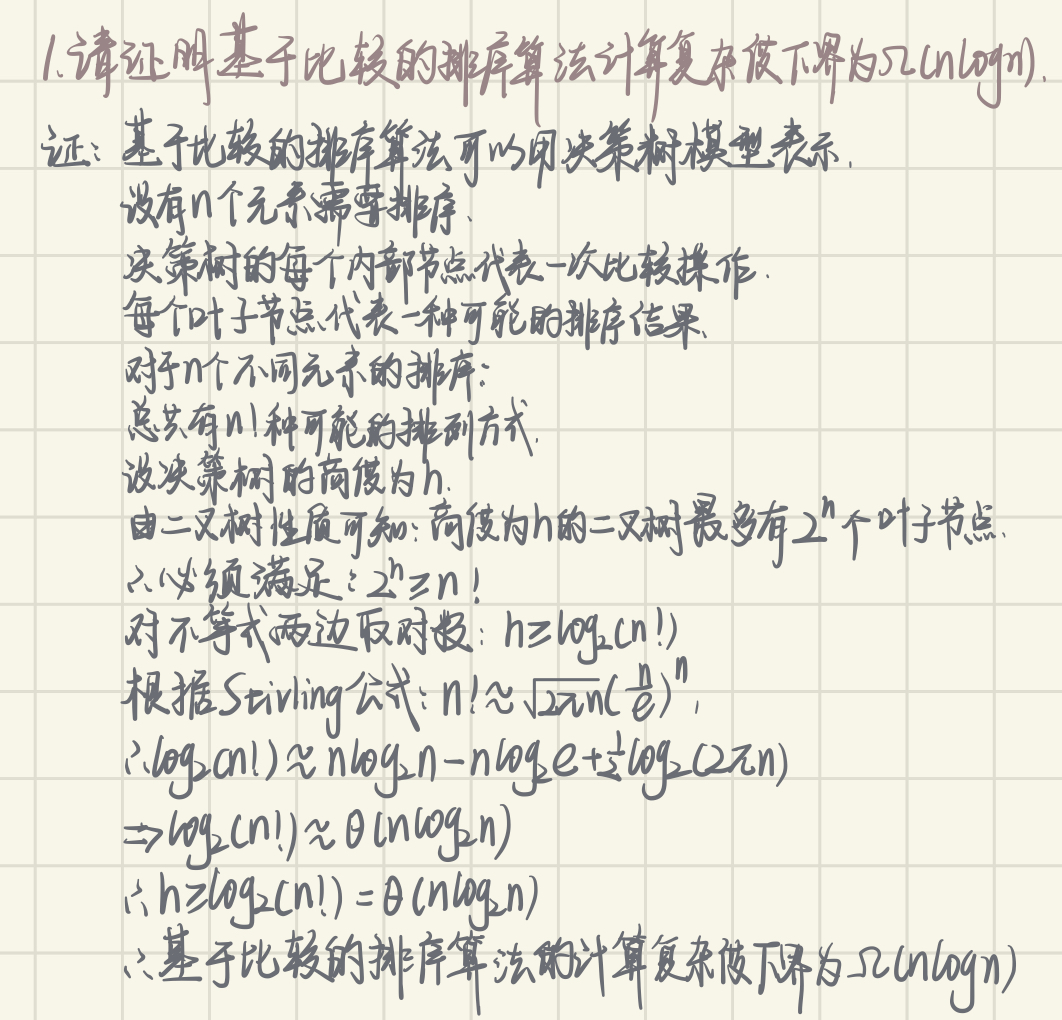 1.请证明基于比较的排序算法计算复杂度下界为Ω(nlogn).
证: 基于比较的排序算法可以用决策树模型表示.
设有n个元素需要排序.
决策树的每个内部节点代表一次比较操作.
每个叶子节点代表一种可能的排序结果.
对于n个不同元素的排序:
总共有n!种可能的排列方式.
设决策树的高度为h.
由二叉树性质可知:高度为h的二叉树最多有2^h个叶子节点.
∴必须满足:2^h≥n!
对不等式两边取对数: h≥log₂(n!)
根据Stirling公式: n!≈√(2πn)(n/e)^n.
∴log₂(n!)≈nlog₂n-nlog₂e+½log₂(2πn)
⇒log₂(n!)≈θ(nlog₂n)
∴h≥log₂(n!)=θ(nlog₂n)
∴基于比较的排序算法的计算复杂度下界为Ω(nlogn)